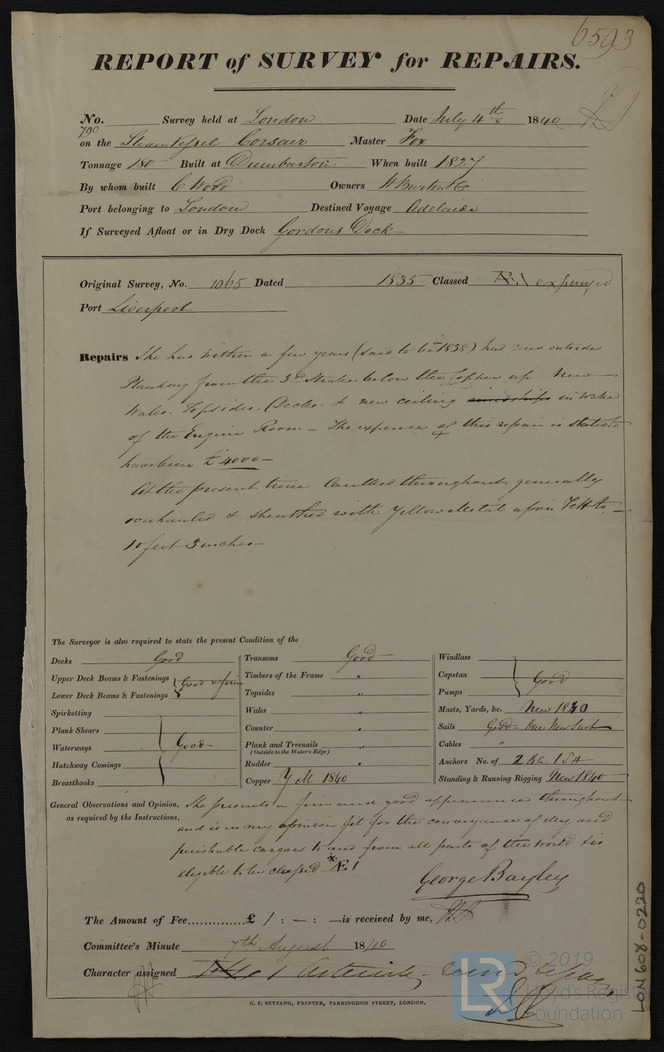 6593
REPORT of SURVEY for REPAIRS.
No. 790 Survey held at London Date July 4th 1840
on the Steam Vessel Corsair Master Fox
Tonnage 180 Built at Dumbarton When built 1827
By whom built C Wood Owners W Burton & Co
Port belonging to London Destined Voyage Adelaide
If Surveyed Afloat or in Dry Dock Gordons Dock
Original Survey, No. 1065 Dated 1835 Classed Æ1 expunged
Port Liverpool
Repairs She has within a few years (said to be in 1838) had new outside
Planking from the 3rd Strake below the Copper up New
Wales. Topsides. Decks. & new ceiling amidships in wake
of the Engine Room - The expence of this repair is stated to
have been £4000 -
At the present time Caulked throughout, generally
overhauled & sheathed with Yellow Metal upon Felt to
10 feet 3 inches -
The Surveyor is also required to state the present Condition of the
Decks Good
Upper Deck Beams & Fastenings
Lower Deck Beams & Fastenings
Good & firm
Spirketting
Plank Shears
Waterways
Hatchway Comings
Breasthooks
Good -
Transoms Good -
Timbers of the Frame "
Topsides "
Wales "
Counter "
Plank and Treenails "
(Outside to the Water's Edge)
Rudder "
Copper Y M 1840
Windlass
Capstan
Pumps
Good
Masts, Yards, &c. New 1840
Sails Good - One New Suit
Cables "
Anchors No. of 2 Br. 1 S A
Standing & Running Rigging New 1840
General Observations and Opinion, She presents a firm and good appearance throughout
as required by the Instructions, and is in my opinion fit for the conveyance of dry and
perishable cargoes to and from all parts of the world & is
eligible to be classed * Æ 1
George Bayley
The Amount of Fee............£ 1 : — : — is received by me,
Committee's Minute 7th August 1840
Character assigned 1 Asterisk
C. F. SEYFANG, PRINTER, FARRINGDON STREET, LONDON.
LON608-0220
LR
© 2019
Lloyd's Register
Foundation